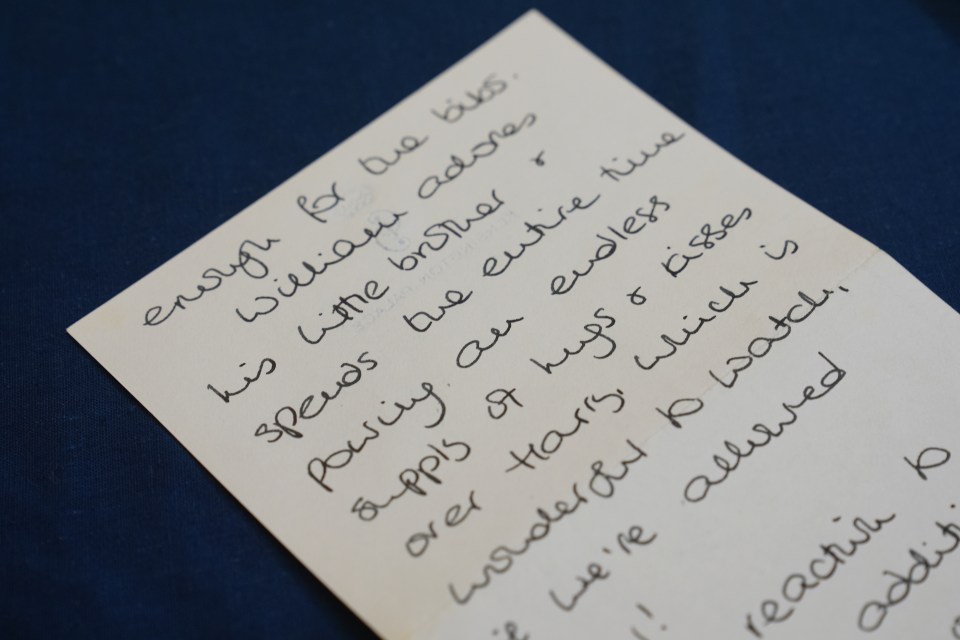 enough for the bibs.
William adores
his little brother &
spends the entire time
pouring an endless
supply of hugs & kisses
over Harry, which is
wonderful to watch,
we're allowed
reaction to